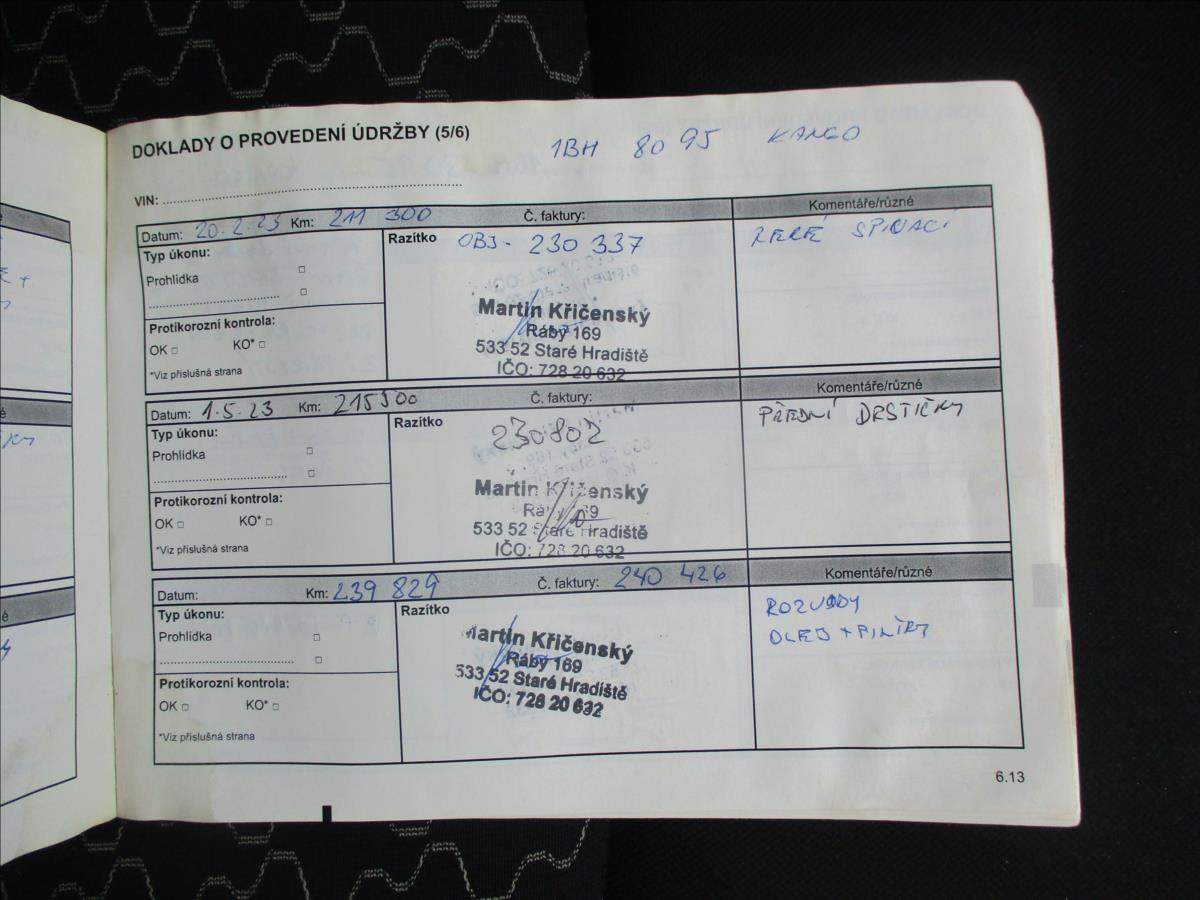 DOKLADY O PROVEDENÍ ÚDRŽBY (5/6)
1BH 8095 KANGO
VIN:
Datum: 20.2.23 Km: 211 300 Č. faktury: Komentáře/různé
Typ úkonu:
Prohlídka
Razítko
OBJ- 230 337
RELÉ SPÍNACÍ
Martin Křičenský
Ráby 169
533 52 Staré Hradiště
IČO: 728 20 632
Protikorozní kontrola:
OK KO*
*Viz příslušná strana
Datum: 1.5.23 Km: 215300 Č. faktury: Komentáře/různé
Typ úkonu:
Prohlídka
Razítko
230802
PŘEDNÍ DESTIČKY
Martin Křičenský
Ráby 169
533 52 Staré Hradiště
IČO: 728 20 632
Protikorozní kontrola:
OK KO*
*Viz příslušná strana
Datum: Km: 239 829 Č. faktury: 240 426 Komentáře/různé
Typ úkonu:
Prohlídka
Razítko
ROZVODY
OLEJ + FILTRY
Martin Křičenský
Ráby 169
533 52 Staré Hradiště
IČO: 728 20 632
Protikorozní kontrola:
OK KO*
*Viz příslušná strana
6.13